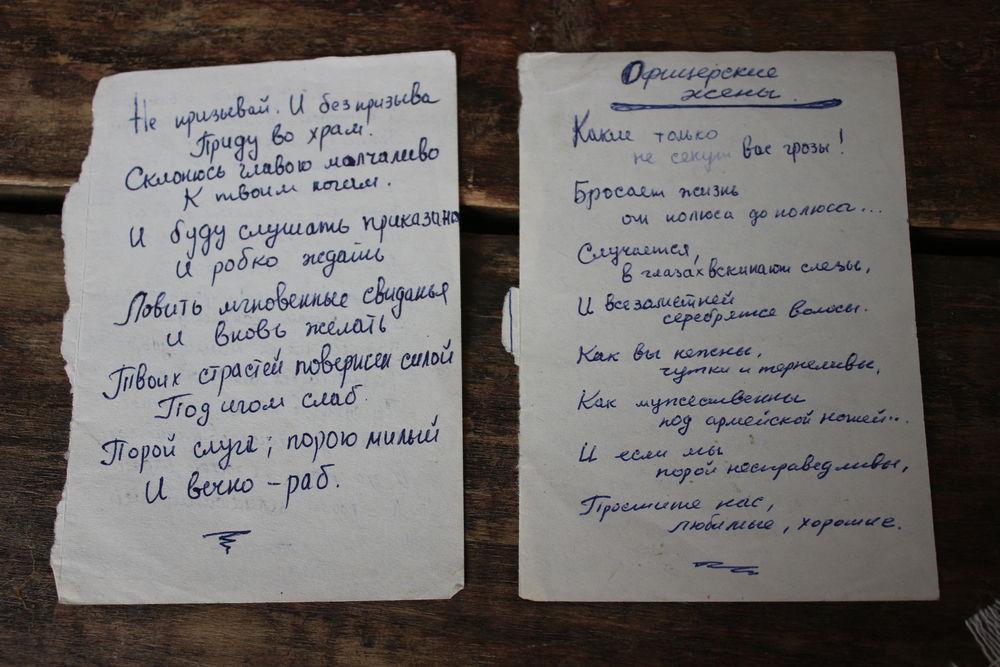 Не призывай. И без призыва
Приду во храм.
Склонюсь главою молчаливо
К твоим ногам.
И буду слушать приказанья
И робко ждать
Ловить мгновенные свиданья
И вновь желать
Твоих страстей повержен силой
Под игом слаб.
Порой слуга; порою милый
И вечно - раб.
Офицерские
жены
Какие только
не секут вас грозы!
Бросает жизнь
от полюса до полюса...
Случается,
в глазах вскипают слезы,
И всё заметней
серебрятся волосы.
Как вы нежны,
чутки и терпеливы,
Как мужественны
под армейской ношей...
И если мы
порой несправедливы,
Простите нас,
любимые, хорошие.